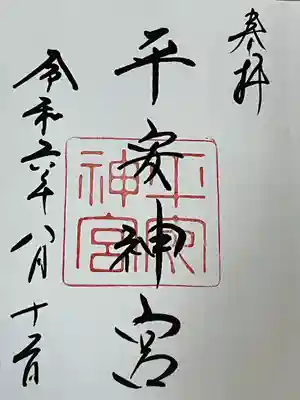 奉拝
平安神宮
令和六年八月十一日
平安神宮